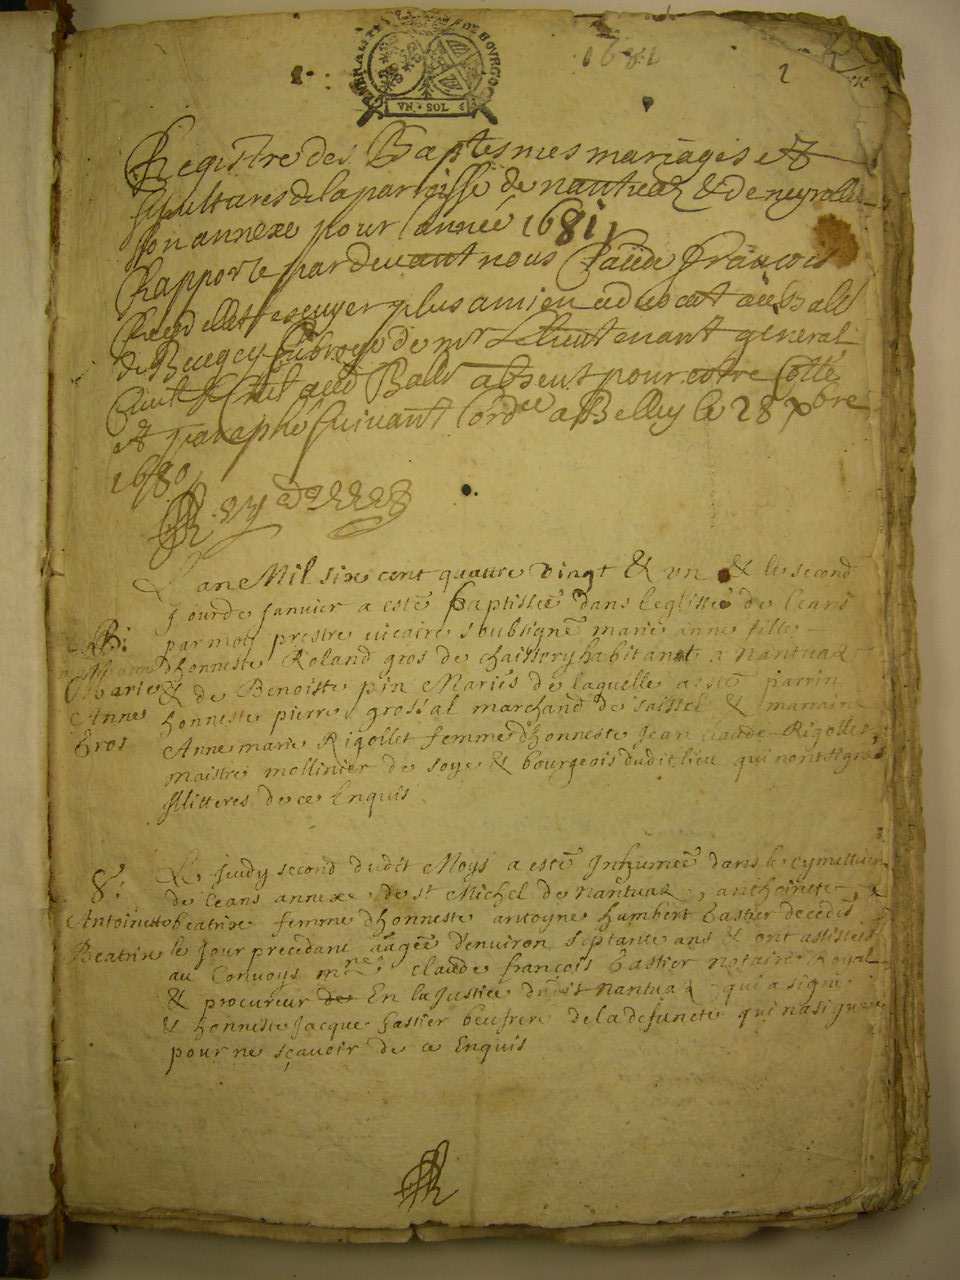 GENERALITE DE BOVRGOG
VN · SOL
1681
2
Registre des Baptesmes mariages et
sepultures de la parroisse de nantuaz & de neyrolle
son annexe pour lannée 1681
Rapporte pardevant nous Claude François
escuyer plus antien advocat au Balle
de Beugey de mr Le Lieutenant general
Civil & Crim aud Balle absent pour estre Cotté
et paraphé suivant Lordce a Belley le 28 xbre
1680
Lan Mil six cent quattre vingt & un & le second
Jour de Janvier a esté baptissée dans leglisse de ceans
par moy prestre vicaire soubsigné marie anne fille
dhonneste Roland gros de chaissery habitant a nantuaz
& de Benoiste pin Mariés de laquelle a esté parrin
honneste pierre grossal marchand de saissel & marraine
Anne marie Rigollet femme dhonneste Jean claude Rigollet
maistre mollinier de soye & bourgeois dudit lieu qui nont signé
Illitteres de ce Enquis
B:
Marie
Anne
Gros
Le Jeudy second dudit Moys a esté Inhumée dans le cymettiere
de ceans annexe de st Michel de nantuaz, anthoinette
beatrix femme dhonneste antoyne humbert bastier decedée
le Jour precedant aagée denviron septante ans & ont assistés
au Convoys mre claude françois bastier notaire Royal
& procureur En la Justice dudit nantuaz qui a signé
& honneste Jacque bastier beufrere de la defuncte qui na signé
pour ne sçavoir de ce Enquis
S:
Antoinette
Beatrix